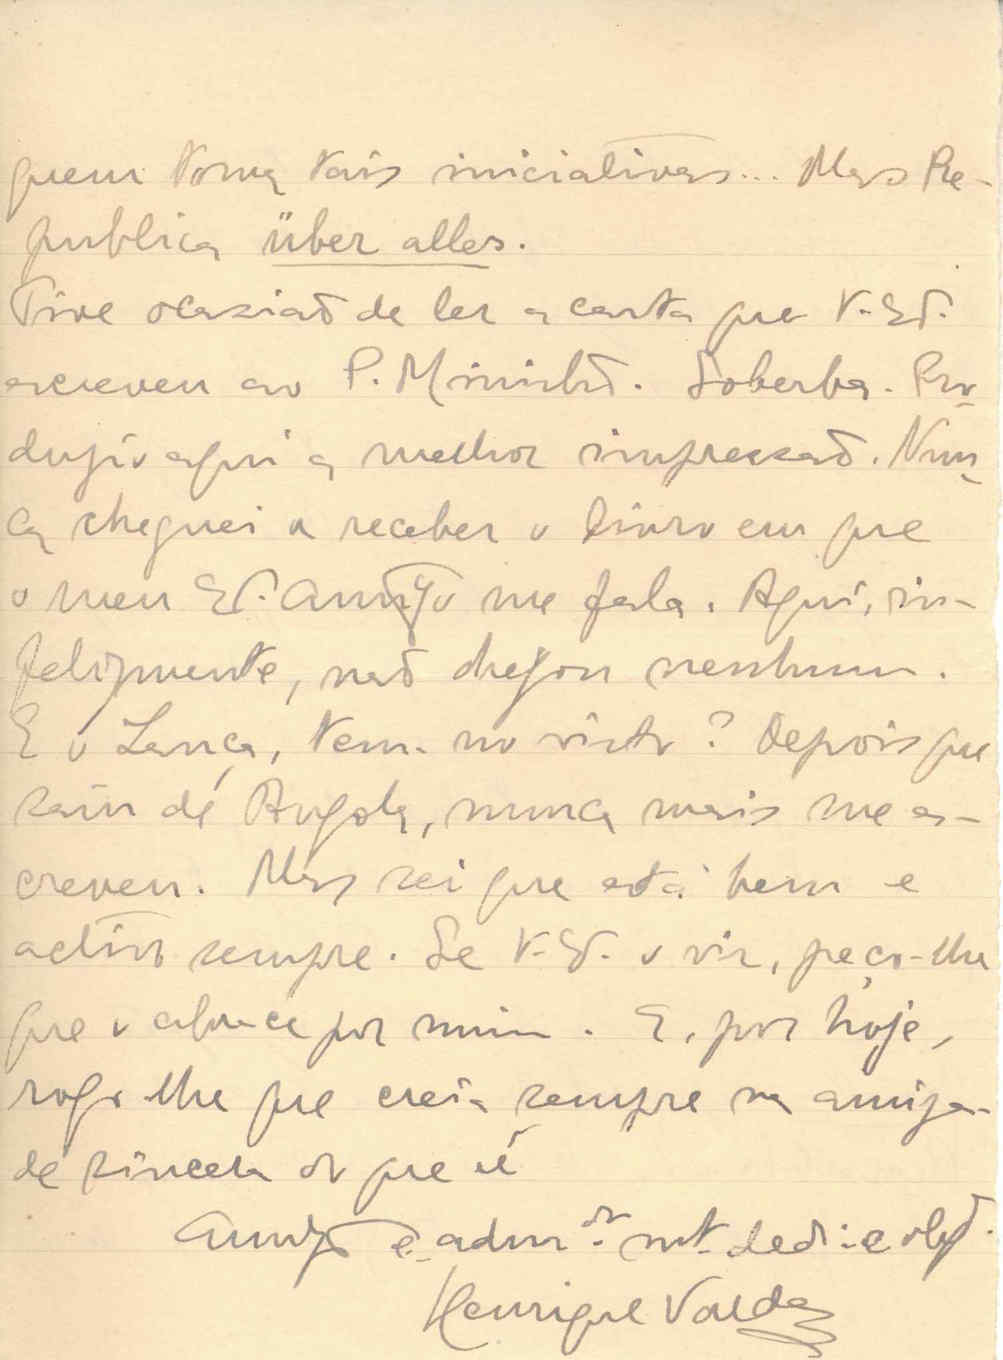 quem toma tais iniciativas... Mas Re-
publica über alles.
Tive ocasião de ler a carta que V. Ex.
escreveu ao P. Ministro. Soberba. Pro-
duziu aqui a melhor impressão. Nun-
ca cheguei a receber o livro em que
o meu Ex. Amigo me fala. Aqui, in-
felizmente, não chegou nenhum.
E o Lança, tem-no visto? Depois que
saíu de Angola, nunca mais me es-
creveu. Mas sei que está bem e
activo sempre. Se V. Ex. o vir, peço-lhe
que o abrace por mim. E, por hoje,
rogo-lhe que creia sempre na amiza-
de sincera do que é
Amigo e adm.dor mt. ded. e obg.
Henrique